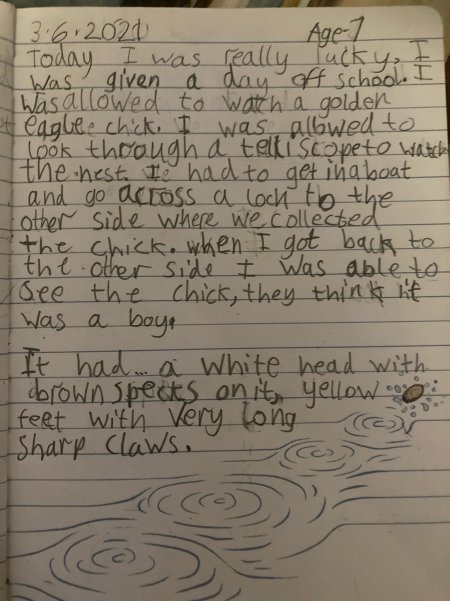 3.6.2021 Age-7
Today I was really lucky, I
was given a day off school. I
was allowed to watch a golden
eaglue chick. I was allowed to
look through a telliscope to watch
the nest. I had to get in a boat
and go across a loch to the
other side where we collected
the chick. when I got back to
the other side I was able to
see the chick, they think it
was a boy.
It had... a white head with
brown specks on it, yellow
feet with very long
sharp claws.